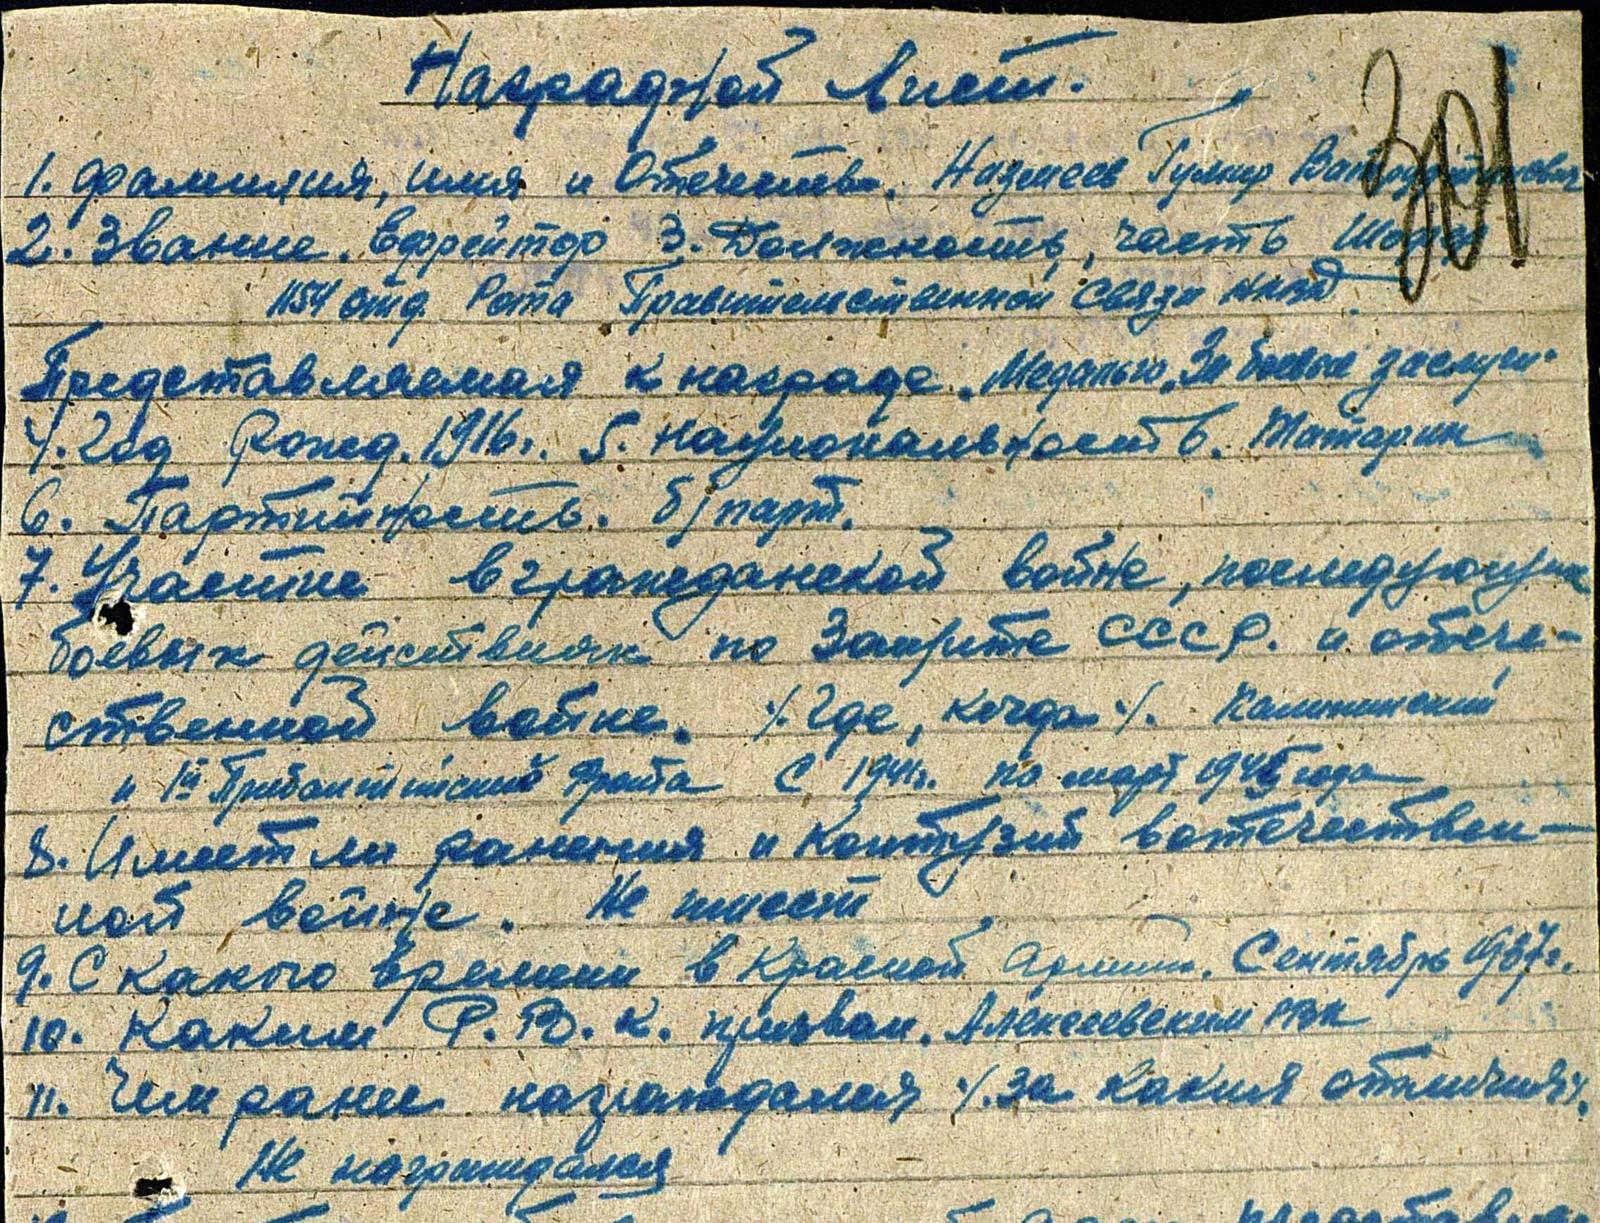 Наградной лист.
301
1. Фамилия, имя и Отечество. Назмеев Гумир
2. Звание. Ефрейтор 3. Должность, часть Шофер
1154 отд. Рота Правительственной связи НКВД
Представляемая к награде. Медалью „За боевые заслуги"
4. Год Рожд. 1916г. 5. Национальность. Татарин
6. Партийность. б/парт.
7. Участие в гражданской войне, последующих
боевых действиях по Защите СССР. и отече-
ственной войне. /. Где, когда /. Калининский
и 1й Прибалтийский Фронта С 1941г. по март 1945 года
8. Имеет ли ранения и контузий в отечествен-
ной войне. Не имеет
9. С какого времени в Красной Армии. Сентябрь 1937г.
10. Каким Р.В.К. призван. Алексеевским РВК
11. Чем ранее награждался /. За какия отличия /.
Не награждался